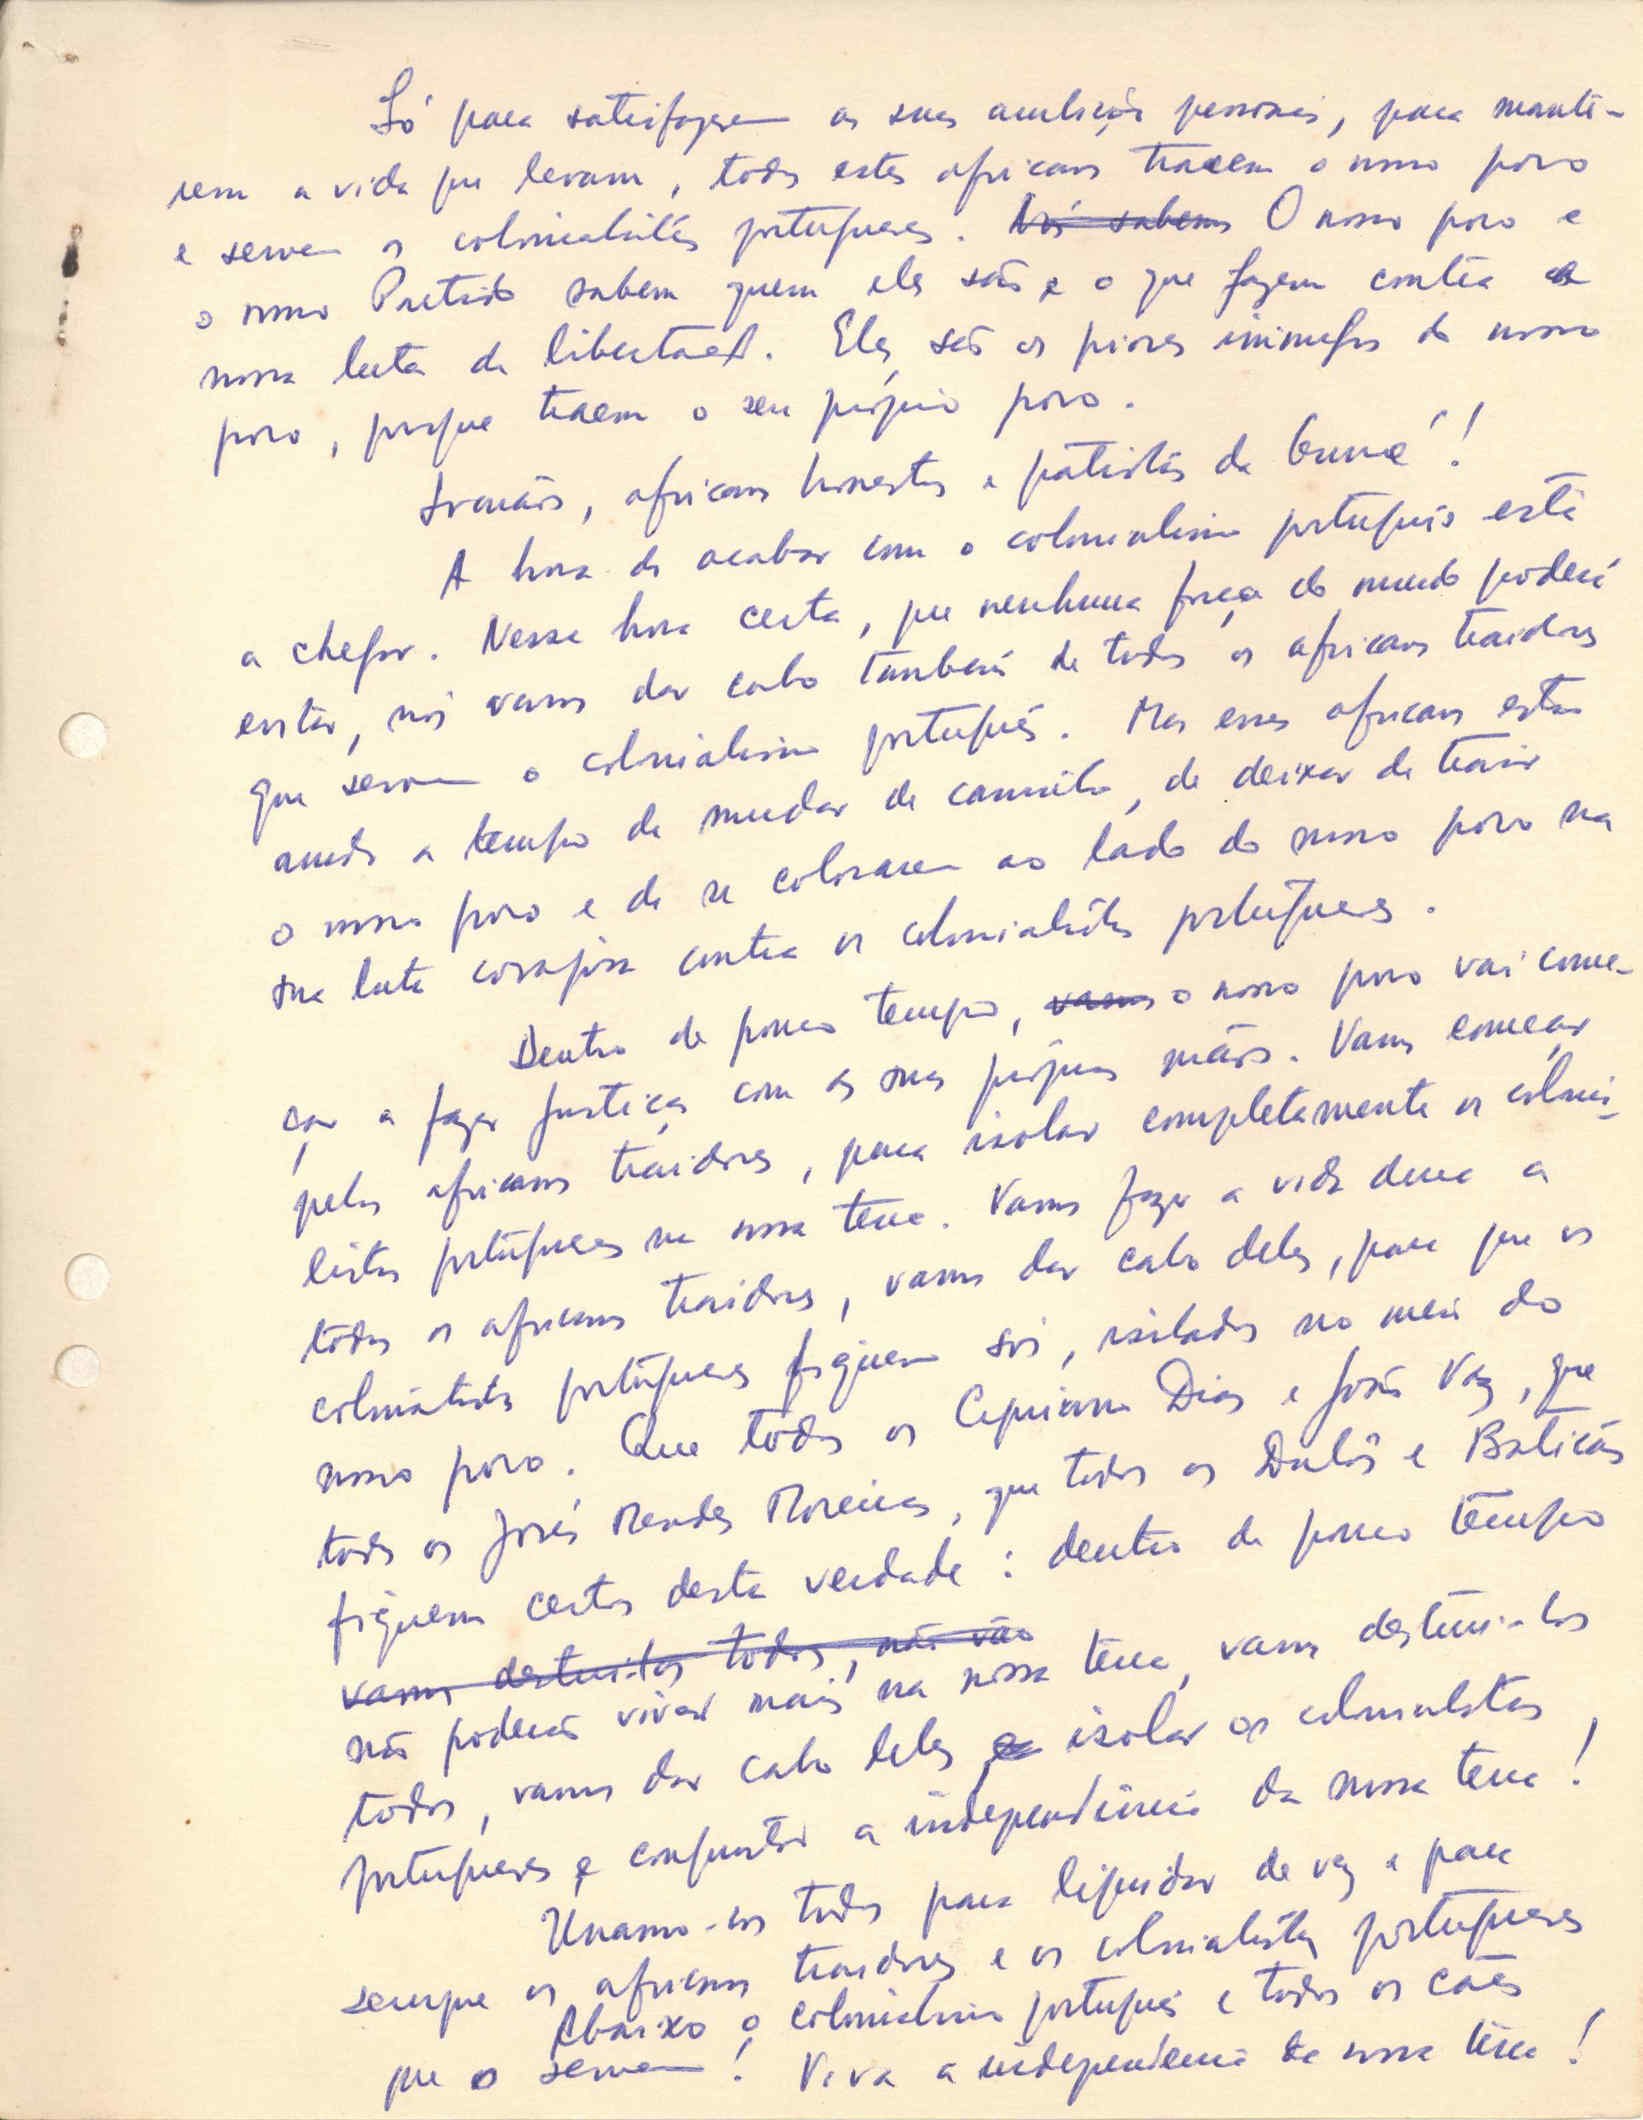 Só para satisfazerem as suas ambições pessoais, para mante-
rem a vida que levam, todos estes africanos traem o nosso povo
e servem os colonialistas portugueses. ~~Nós sabemos~~ O nosso povo e
o nosso Partido sabem quem eles são e o que fazem contra a
nossa luta de libertação. Eles são os piores inimigos do nosso
povo, porque traem o seu próprio povo.
Irmãos, africanos honestos e patriotas da Guiné!
A hora de acabar com o colonialismo português está
a chegar. Nessa hora certa, que nenhuma força do mundo poderá
evitar, nós vamos dar cabo também de todos os africanos traidores
que servem o colonialismo português. Mas esses africanos estão
ainda a tempo de mudar de caminho, de deixar de trair
o nosso povo e de se colocarem ao lado do nosso povo na
sua luta corajosa contra os colonialistas portugueses.
Dentro de pouco tempo, ~~vamos~~ o nosso povo vai come-
çar a fazer justiça com as suas próprias mãos. Vamos começar
pelos africanos traidores, para isolar completamente os colonia-
listas portugueses na nossa terra. Vamos fazer a vida dura a
todos os africanos traidores, vamos dar cabo deles, para que os
colonialistas portugueses fiquem sós, isolados no meio do
nosso povo. Que todos os Cipriano Dias e José Vaz, que
todos os José Mendes Moreiras, que todos os Dulós e Baticãs
fiquem certos desta verdade: dentro de pouco tempo
~~vamos destruí-los todos, não vão~~
não poderão viver mais na nossa terra, vamos destruí-los
todos, vamos dar cabo deles, isolar os colonialistas
portugueses e conquistar a independência da nossa terra!
Unamo-nos todos para liquidar de vez e para
sempre os africanos traidores e os colonialistas portugueses
Abaixo o colonialismo português e todos os cães
que o servem! Viva a independência da nossa terra!